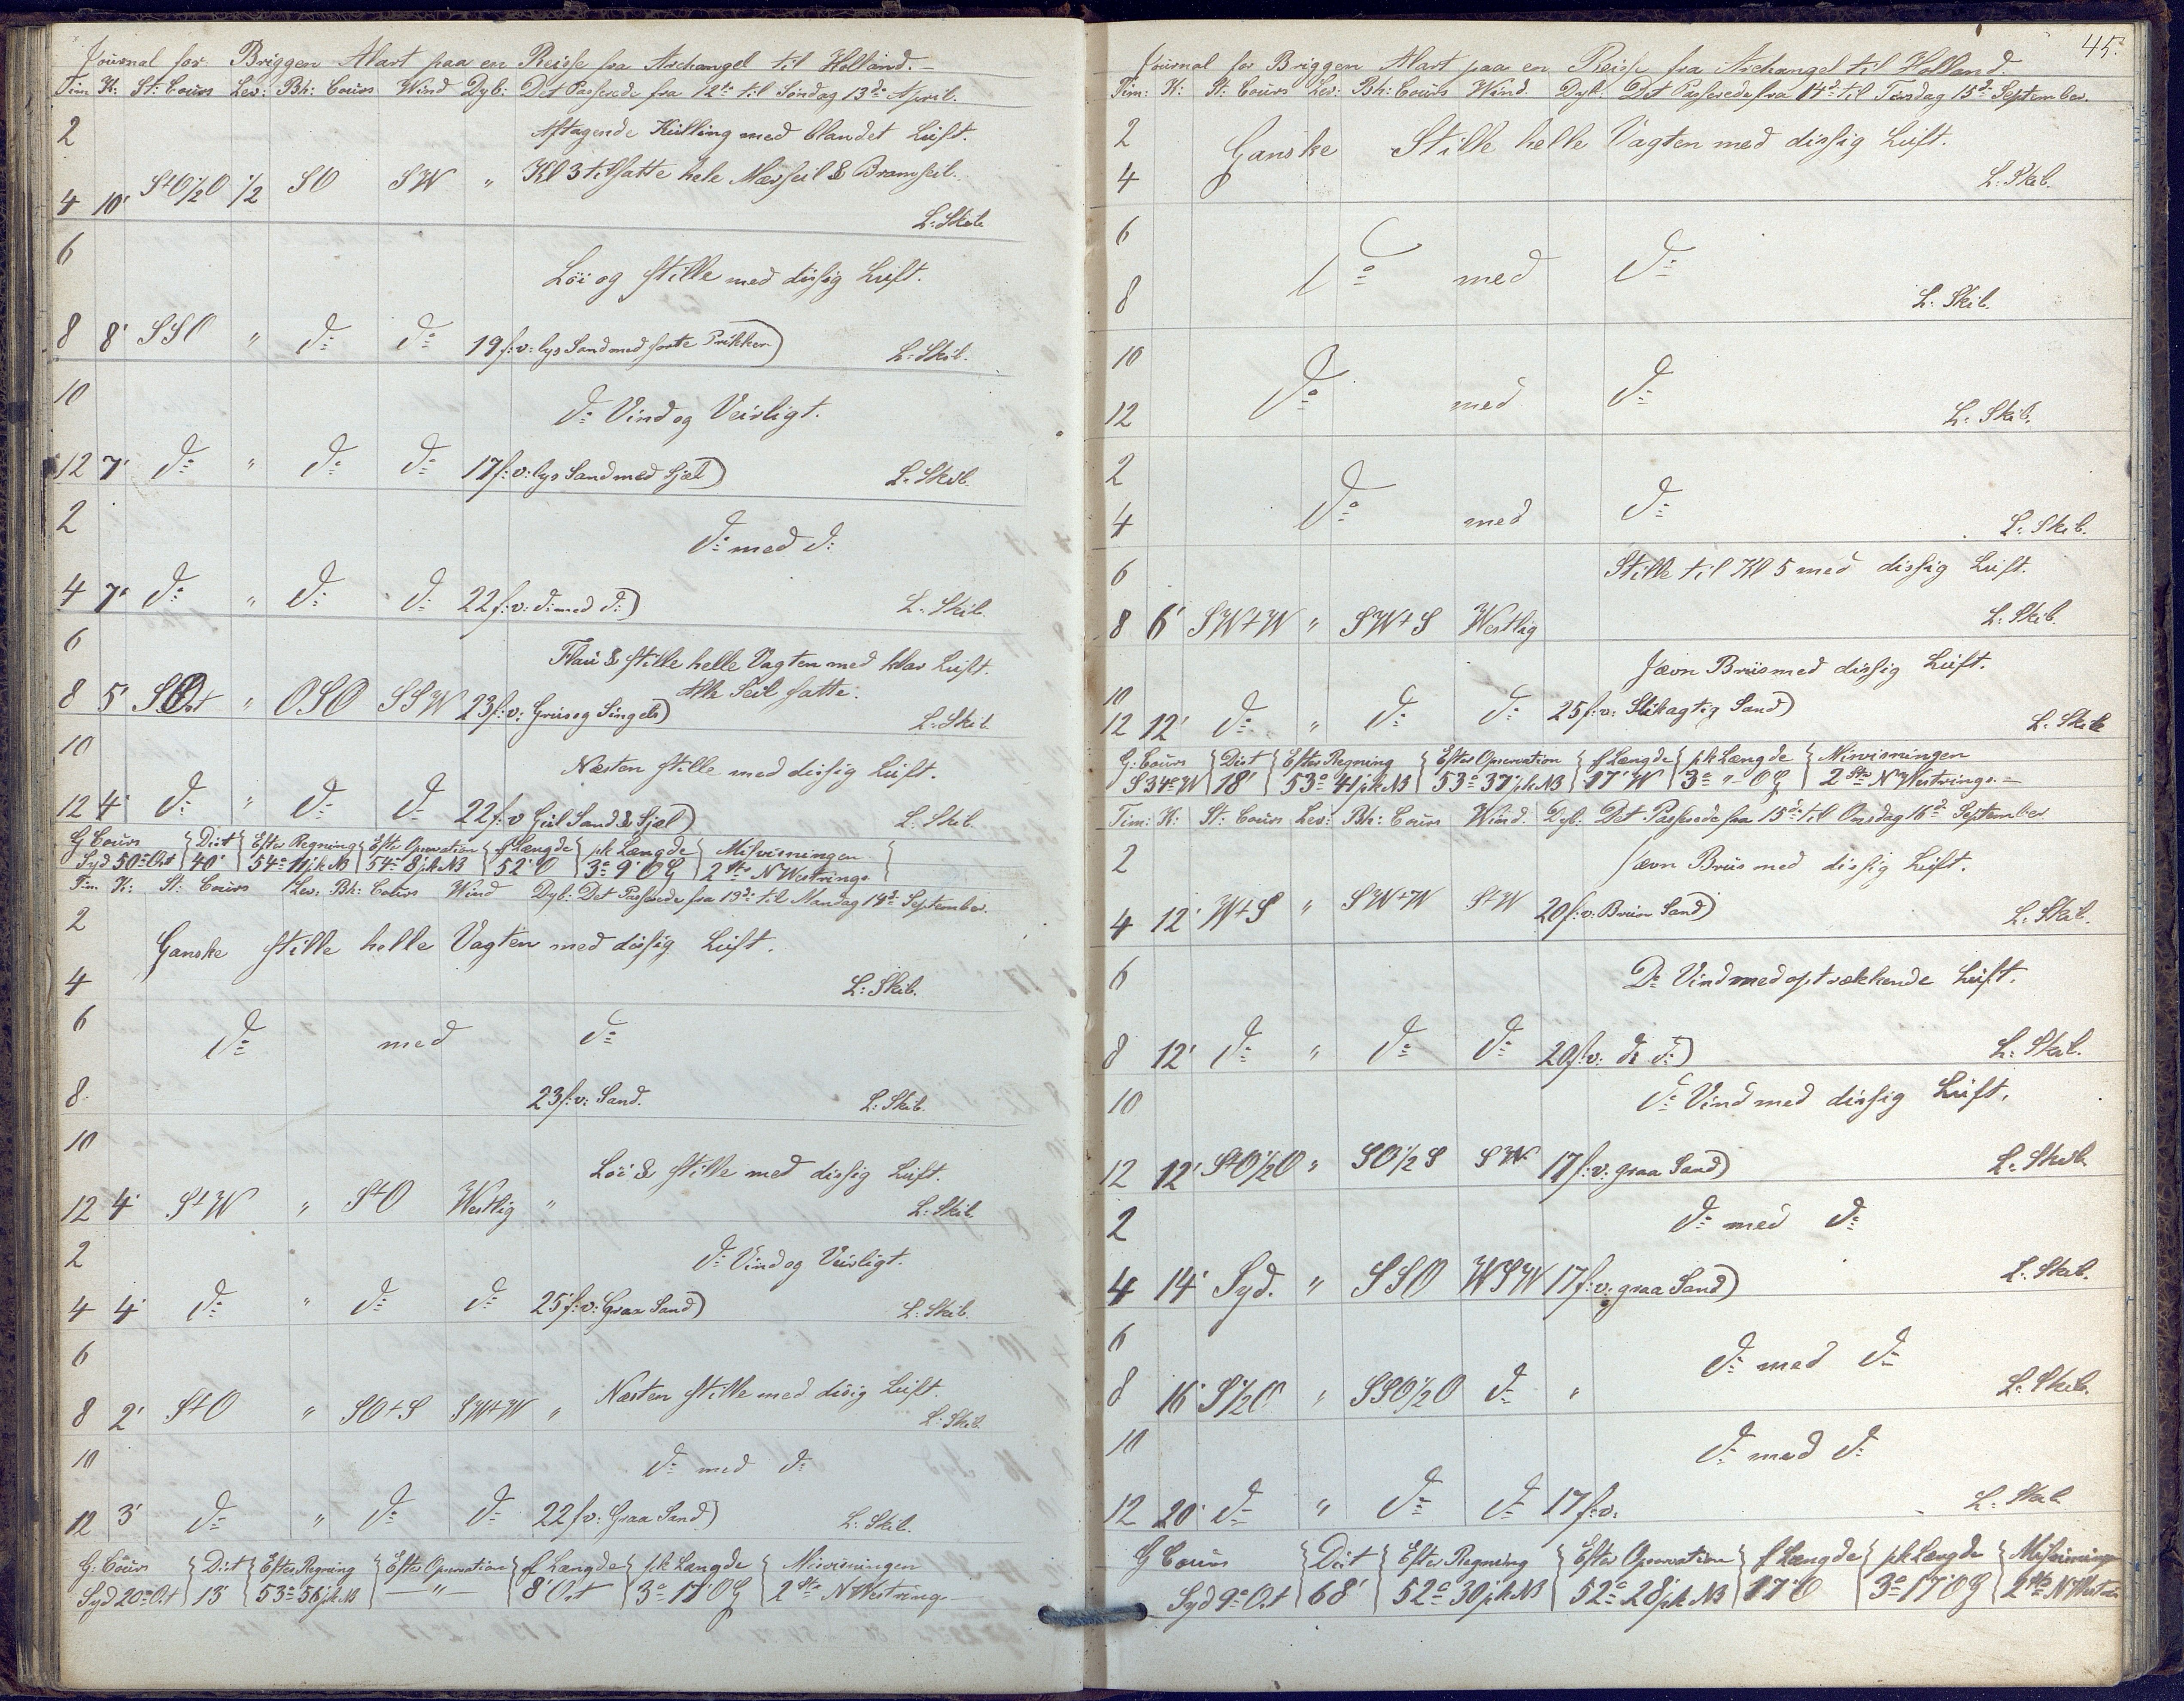 Journal for Briggen Alart paa en Reise fra Archangel til Holland.
Tim K: St: Cours Lev: Bh: Cours Wind Dyb: Det Passerede fra 12te til Söndag 13de April.
2 Aftagende Kulling med blandet Luft.
Kl 3 tilsatte hele Mærseil & Bramseil.
4 10' StO½O ½ SO SW "
L: Skib
6
Löi og stille med dissig Luft.
8 8' SSO " do do 19 f: v: lys Sand med sorte Prikker) L: Skib.
10
do Vind og Veirligt.
12 7' do " do do 17 f: v: lys Sand med Sjæl) L: Skib.
2
do med do
4 7' do " do do 22 f: v: do med do) L: Skib.
6
Flau & stille helle Vagten med klar Luft.
Alle Seil satte.
8 5' SOst " OSO SSW 23 f: v: Gruus og Singels) L: Skib
10
Næsten stille med dissig Luft.
12 4' do " do do 22 f: v Guul Sand & Sjæl) L: Skib.
G Cours Dist Efter Regning Efter Opservation f Længde pk Længde Misvisningen
Syd 50° Ost 40' 54° 11' pk NB 54° 8' pk NB 52' O 3° 9' OG 2 Str NWestrings
Tim K: St: Cours Lev: Bh: Cours Wind Dyb: Det Passerede fra 13de til Mandag 14de September.
2
Ganske stille helle Vagten med dissig Luft.
4 L: Skib.
6
do med do
8 23 f: v: Sand. L: Skib.
10
Löi & stille med dissig Luft.
12 4' StW " StO Westlig " L: Skib.
2
do Vind og Veirligt.
4 4' do " do do 25 f: v: Graa Sand) L: Skib.
6
Næsten stille med disig Luft.
8 2' StO " SOtS SWtW " L: Skib.
10
do med do
12 3' do " do do 22 f v: Graa Sand) L: Skib.
G: Cours Dist Efter Regning Efter Opservation f Længde pk Længde Misvisningen
Syd 20° Ost 13' 53° 56' pk NB — " — 8' Ost 3° 17' OG 2 Str NWestrings
45.
Journal for Briggen Alart paa en Reise fra Archangel til Holland.
Tim: K: St: Cours Lev: Bh: Cours Wind. Dyb: Det Passerede fra 14de til Tirsdag 15de September.
2
Ganske Stille helle Vagten med dissig Luft.
4 L: Skib.
6
do med do
8 L: Skib.
10
do med do
12 L: Skib.
2
do med do
4 L: Skib.
6 Stille til Kl 5 med dissig Luft.
8 6' SWtW " SWtS Westlig L: Skib.
Jævn Briis med dissig Luft.
10
12 12' do " do do 25 f: v: Slikagtig Sand) L: Skib
G: Cours Dist Efter Regning Efter Opservation f Længde pk Længde Misvisningen
S 34° W 18' 53° 41' pk NB 53° 37' pk NB 17' W 3° " OG 2 Str NWestrings
Tim: K: St: Cours Lev: Bh: Cours Wind. Dyb: Det Passerede fra 15de til Onsdag 16de September
2 Jævn Briis med dissig Luft.
4 12' WtS " SWtW StW 20 f: v: Bruun Sand) L: Skib.
6
Do Vind med optrækkende Luft.
8 12' do " do do 20 f: v: do do) L: Skib.
10 do Vind med dissig Luft.
12 12' StO½O " SO½S SW 17 f: v: graa Sand) L: Skib
2 do med do
4 14' Syd. " SSO WSW 17 f: v: graa Sand) L: Skib.
6
do med do
8 16' S½O " SSO½O do " L: Skib.
10
do med do
12 20' do " do do 17 f: v. L: Skib
G Cours Dist Efter Regning Efter Opservation f Længde pk Længde Misvisning
Syd 9° Ost 68' 52° 30' pk NB 52° 28' pk NB 17' O 3° 17' OG 2 Str NWest